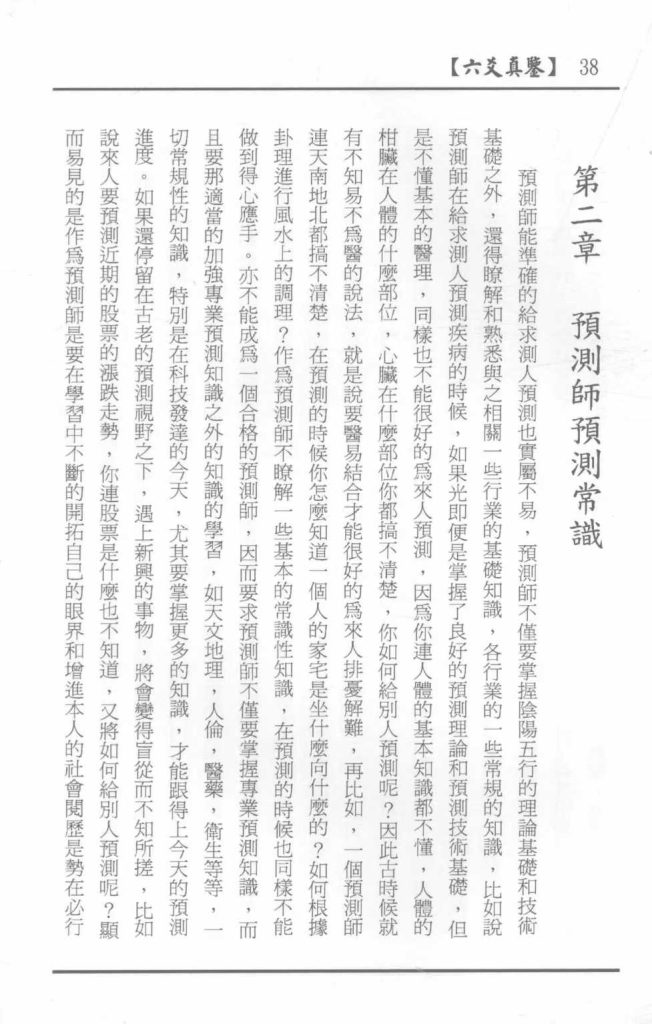 【六爻真鑒】 38
第二章 預測師預測常識
預測師能準確的給求測人預測也實屬不易，預測師不僅要掌握陰陽五行的理論基礎和技術
基礎之外，還得瞭解和熟悉與之相關一些行業的基礎知識，各行業的一些常規的知識，比如說
預測師在給求測人預測疾病的時候，如果光即便是掌握了良好的預測理論和預測技術基礎，但
是不懂基本的醫理，同樣也不能很好的爲來人預測，因爲你連人體的基本知識都不懂，人體的
柑臟在人體的什麼部位，心臟在什麼部位你都搞不清楚，你如何給別人預測呢？因此古時候就
有不知易不爲醫的說法，就是說要醫易結合才能很好的爲來人排憂解難，再比如，一個預測師
連天南地北都搞不清楚，在預測的時候你怎麼知道一個人的家宅是坐什麼向什麼的？如何根據
卦理進行風水上的調理？作爲預測師不瞭解一些基本的常識性知識，在預測的時候也同樣不能
做到得心應手。亦不能成爲一個合格的預測師，因而要求預測師不僅要掌握專業預測知識，而
且要那適當的加強專業預測知識之外的知識的學習，如天文地理，人倫，醫藥，衛生等等，一
切常規性的知識，特別是在科技發達的今天，尤其要掌握更多的知識，才能跟得上今天的預測
進度。如果還停留在古老的預測視野之下，遇上新興的事物，將會變得盲從而不知所搓，比如
說來人要預測近期的股票的漲跌走勢，你連股票是什麼也不知道，又將如何給別人預測呢？顯
而易見的是作爲預測師是要在學習中不斷的開拓自己的眼界和增進本人的社會閱歷是勢在必行